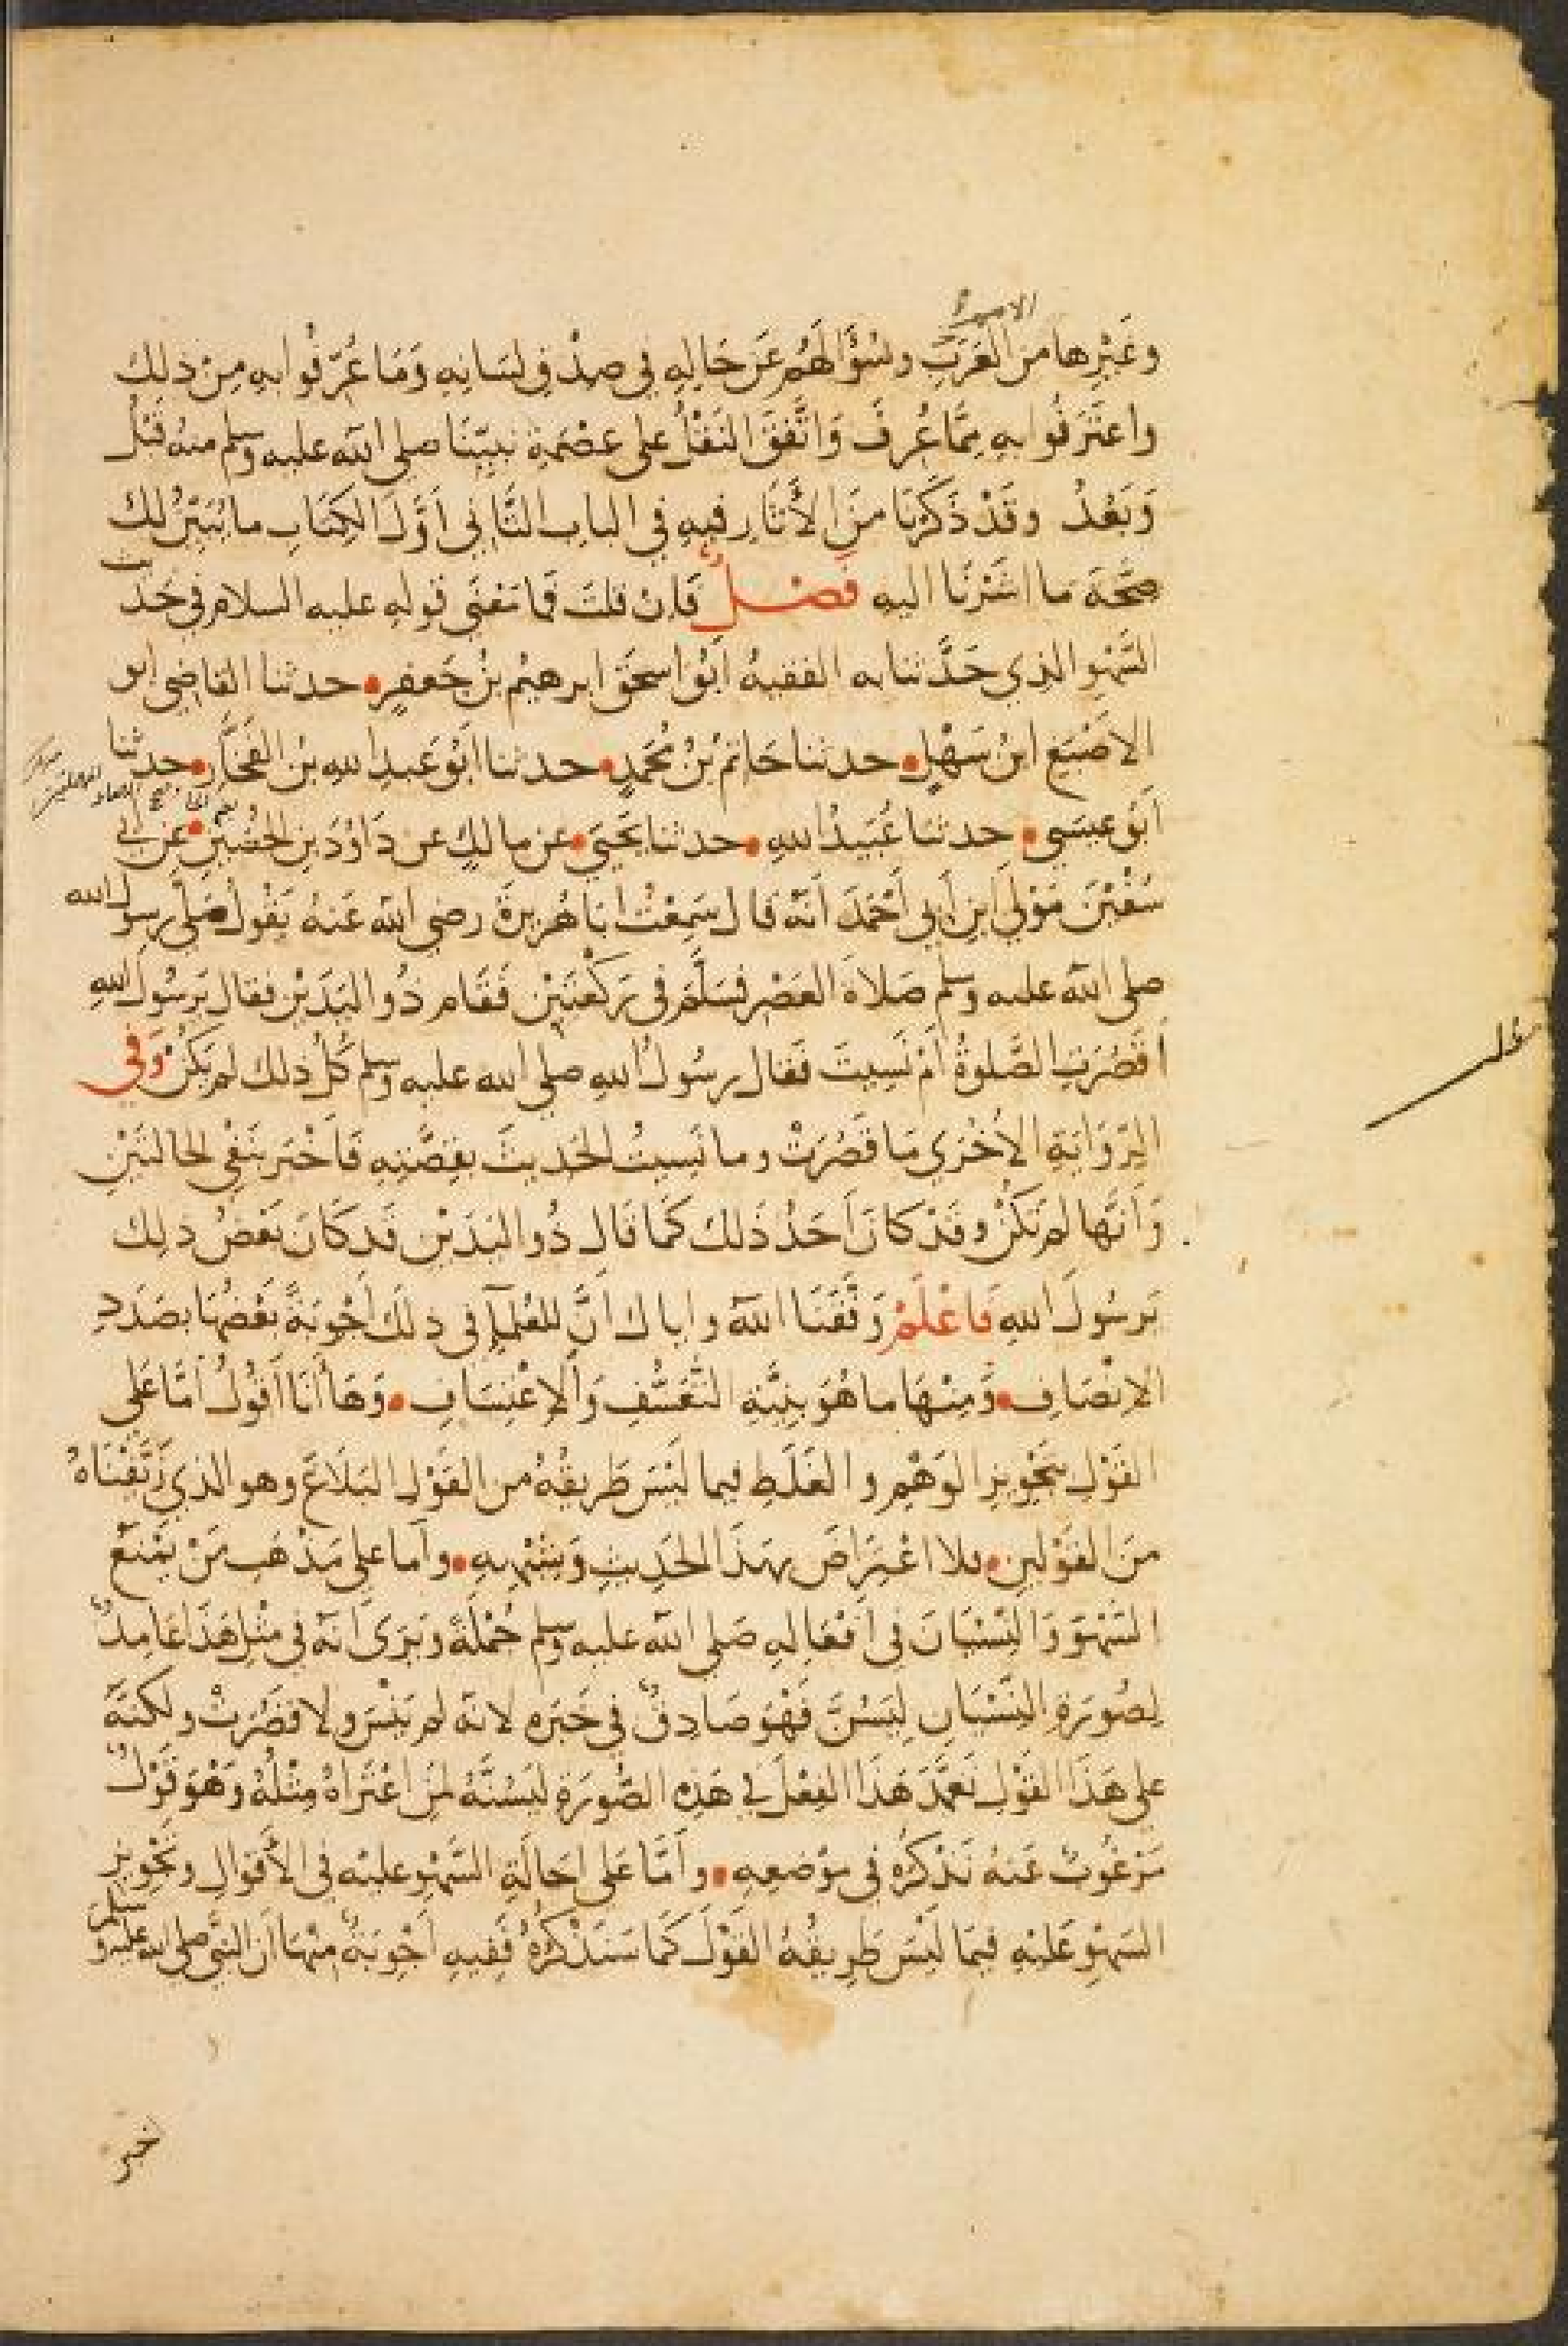 وغَيْرِها من العَرَبِ وسُؤَالَهُم عَن حَالِهِ في صِدْقِ لِسَانِهِ وَمَا عُرِّفُوا بِهِ مِنْ ذلِكَ
واعْتَرَفُوا بِهِ مِمَّا عُرِفَ وَاتَّفَقَ النَقْلُ على عِصْمَةِ نَبِيِّنَا صلى الله عليه وسلم منه قَبْلُ
وَبَعْدُ وقَدْ ذَكَرْنَا مِنَ الأَثَارِ فيهِ في الباب الثَّاني أوَّلَ الكِتَابِ ما يُبَيِّنُ لك
صِحَّةَ مَا اشَرْنَا اليه فَصْلٌ فَإن قلتَ فَمَا مَعْنَى قولهِ عليه السلام في حَديث
السَّهْوِ الذي حَدَّثنا به الفقيهُ أبُو اسحَقَ ابرهيمُ بنُ جَعفرٍ • حدثنا القاضي ابو
الاَصْبَغِ ابنُ سَهْلٍ • حدثنا حَاتمُ بْنُ مُحَمدٍ • حدثنا ابُو عَبدِ اللهِ بن الفَخَّارِ • حدثنا
ابُو عيسَى • حدثنا عُبَيدُ اللهِ • حدثنا يَحيَى • عن مالكٍ عن دَاوُدَ بنِ الحُصَيْنِ • عن أبي
سُفْيٰنَ مَوْلَى ابنِ أبي أحْمَدَ انّه قال سَمِعْتُ ابا هُريرةَ رضي الله عَنهُ يَقُولُ صَلَّى رسولُ الله
صلى الله عليه وسلم صَلاةَ العَصْرِ فسَلَّمَ في رَكْعَتَيْنِ فَقَام ذُو اليَدَيْنِ فقال يَرسُولَ اللهِ
أقَصُرَتِ الصَّلوةُ أمْ نَسِيتَ فَقال رسُولُ اللهِ صلى الله عليه وسلم كُلُّ ذلك لم يَكنْ وَفي
الرِّوَايَةِ الاُخْرَى مَا قَصُرَتْ وما نَسِيتُ الحَديثَ بِقِصَّتِهِ فَاَخْبَر بنَفْيِ الحالتَيْنِ
وَاَنَّها لم تَكُنْ وقَدْ كانَ اَحَدُ ذَلكَ كَمَا قَال ذُو اليَدَيْنِ قَد كَانَ بَعْضُ ذلِك
يَرسُولَ اللهِ فَاعْلَمْ وَفَّقَنَا اللهُ واياك انَّ للعُلَمآءِ في ذلكَ اَجْوِبَةً بَعْضُهَا بِصَدَدِ
الاِنْصَافِ • وَمِنْهَا ما هُوَ بِنِيَّةِ التَّعَسُّفِ وَالاِعْتِسَافِ • وَهَا اَنَا اقُولُ اَمَّا عَلى
القَوْلِ بتَجْويزِ الوَهْمِ والغَلَطِ فيما لَيْسَ طَرِيقُهُ من القَوْلِ البَلَاغَ وهو الذي زَيَّفْنَاهُ
منَ القَوْلَينِ • فلا اعْتِرَاضَ بهذَا الحَديثِ وَشِبْهِهِ • وأما على مَذْهَبِ مَنْ يَمْنَعُ
السَّهْوَ وَالنِّسْيَانَ في اَفْعَالِهِ صَلى الله عليه وسلم جُمْلَةً وَيَرَى اَنّهُ في مثْلِ هَذَا عَامِدٌ
لِصُورَةِ النِّسْيَانِ لِيَسُنَّ فَهْوَ صَادِقٌ في خَبَرِه لانّه لم يَنْسَ ولا قَصُرَتْ ولكنَّهُ
على هَذَا القَوْلِ تَعَمَّدَ هَذَا الفِعْلَ في هَذِهِ الصُّورَةِ لِيَسُنَّهُ لمَنِ اعْتَرَاهُ مِثْلُهُ وَهْوَ قَوْلٌ
مَرْغُوبٌ عَنهُ نَذْكُرُه في مَوْضِعِهِ • واَمَّا عَلى اِحَالَةِ السَّهْوِ عليْهِ في الاَقْوَالِ وتَجْويزِ
السَهْوِ عَليْهِ فيمَا لَيْسَ طَرِيقُهُ القَوْلَ كَمَا سَنَذْكُرُهُ فَفيهِ اَجْوِبَةٌ مِنْهَا اَنَّ النبيَّ صلى الله عليه وسلم
خبر